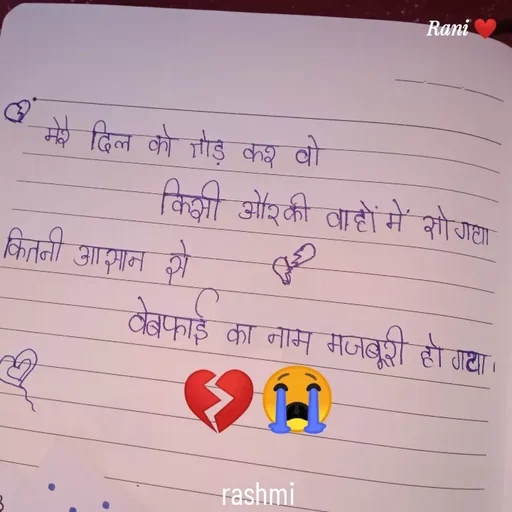 Rani ❤️
मेरे दिल को तोड़ कर वो
किसी और की वाहों में सो गया
कितनी आसान से
वेबफाई का नाम मजबूरी हो गया।
💔😭
rashmi